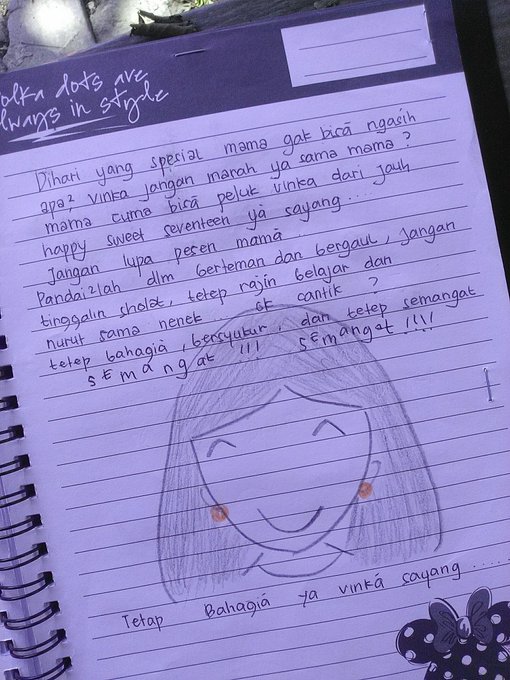 olka dots are
lways in style
Dihari yang spesial mama gak bisa ngasih
apa² vinka jangan marah ya sama mama?
mama cuma bisa peluk vinka dari jauh
happy sweet seventeen ya sayang....
Jangan lupa pesen mama
Pandai²lah dlm berteman dan bergaul, Jangan
tinggalin sholat, tetep rajin belajar dan
nurut sama nenek ok cantik ?
tetep bahagia, bersyukur, dan tetep semangat
SEmangat !!! SEmangat !!!!
Tetap Bahagia ya vinka sayang .....